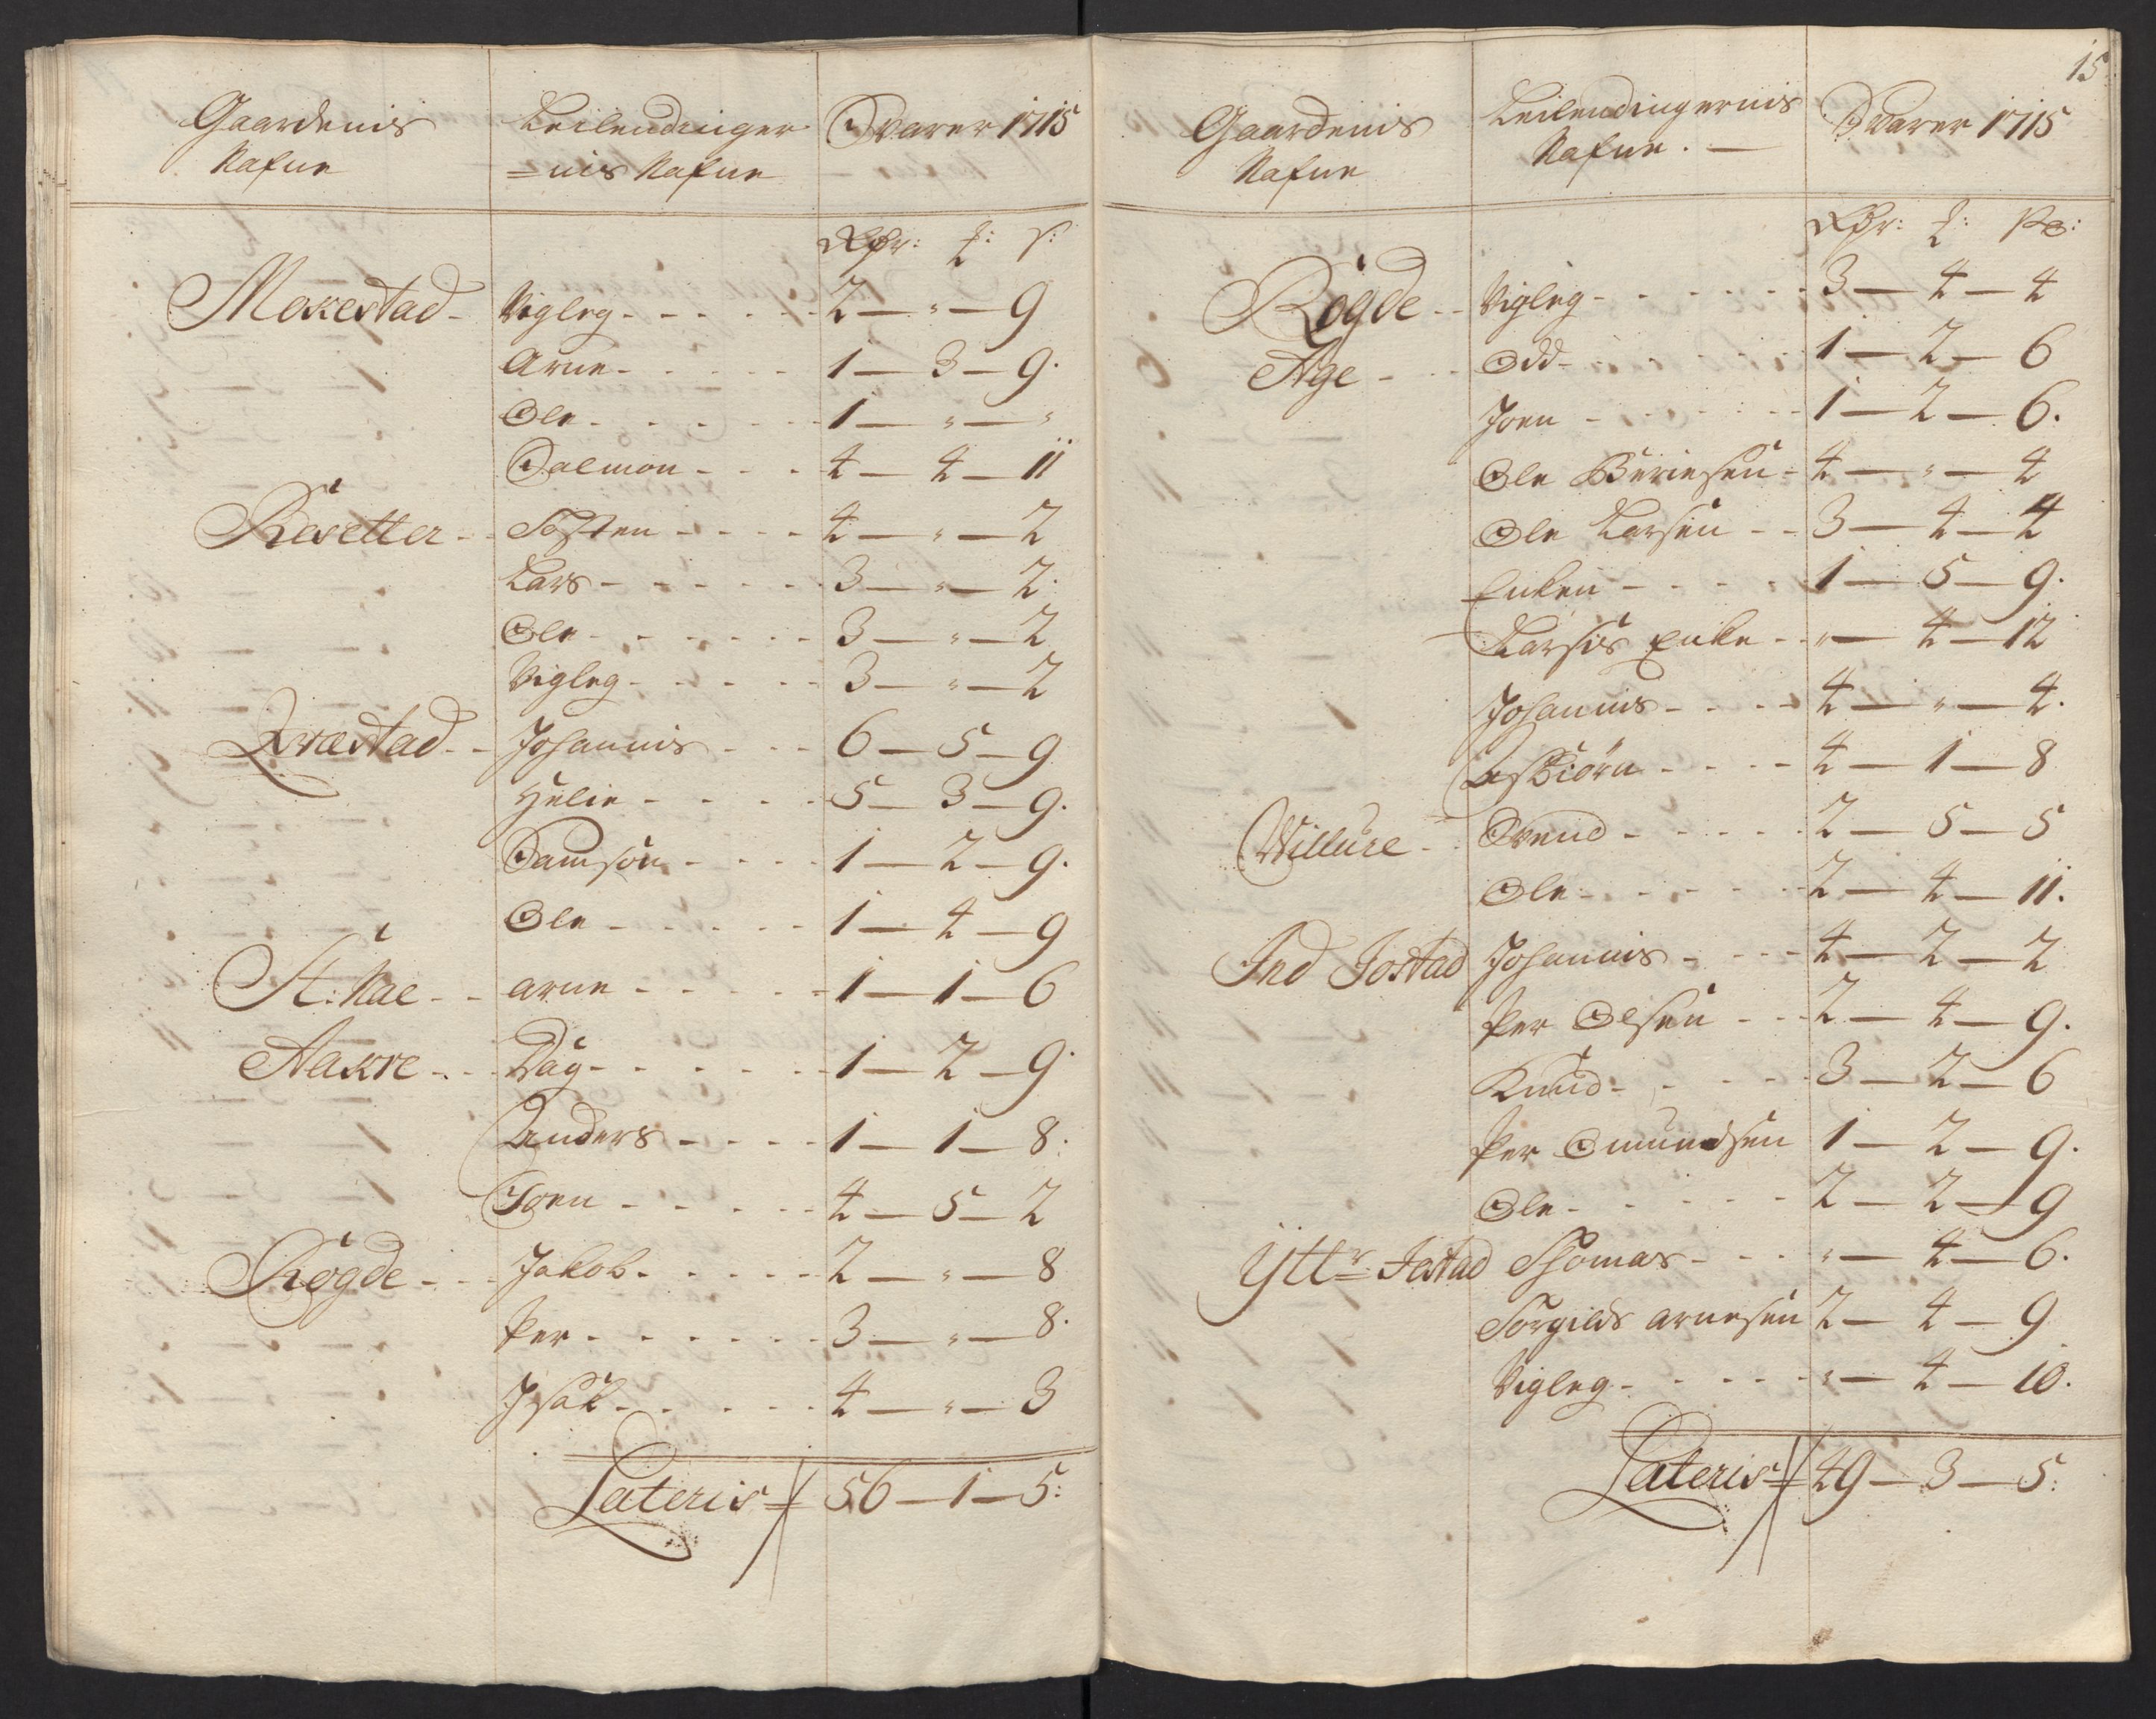 Gaardenis Nafne
Leilendinger =nis Nafne
Svarer 1715
Rdr: ʒ: s:
Mokestad - Vigleg - - - - - 2 — „ — 9
Arne - - - - - 1 — 3 — 9.
Ole - - - - - 1 — „ — „
Salmon - - - 4 — 4 — 11
Resetter - - Tosten - - - - 4 — „ — 2
Lars - - - - - 3 — „ — 2.
Ole - - - - - 3 — „ — 2
Vigleg - - - - - 3 — „ — 2
Qvæstad - - Johannis - - - 6 — 5 — 9
Helie - - - - 5 — 3 — 9.
Samson - - - - 1 — 2 — 9.
Ole - - - - - 1 — 4 — 9
St: Nae - - arne - - - - - 1 — 1 — 6
Aakre - - - Dag - - - - - - 1 — 2 — 9.
Anders - - - - 1 — 1 — 8.
Joen - - - - - 4 — 5 — 2
Røgde - - - Jakob - - - - - 2 — „ — 8
Per - - - - - - 3 — „ — 8.
Isak - - - - - 4 — „ — 3
Lateris 56 — 1 — 5:
15
Gaardenis Nafne
Leilendingernis Nafne. —
Svarer 1715
Rdr: ʒ: s:
Røgde - - Vigleg - - - - - - 3 — 4 — 4
Age - - - Odd - - - - - - 1 — 2 — 6
Joen - - - - - - 1 — 2 — 6.
Ole Børiesen - 4 — „ — 4
Ole Larsen - - 3 — 4 — 4
Enken - - - - 1 — 5 — 9.
Larsis Enke - - „ — 4 — 12
Johannis - - - - 4 — „ — 4.
Asbiørn - - - - 4 — 1 — 8
Willure - - Svend - - - - - 2 — 5 — 5
Ole - - - - - - 2 — 4 — 11.
Ind Jostad Johannis - - - - 4 — 2 — 2
Per Olsen - - - 2 — 4 — 9.
Knud - - - - - 3 — 2 — 6
Per Omundsen 1 — 2 — 9.
Ole - - - - - 2 — 2 — 9
Ÿttr Jostad Thomas - - - - „ — 4 — 6.
Torgilds arnesen 2 — 4 — 9
Vigleg - - - - - „ — 4 — 10.
Lateris 49 — 3 — 5: